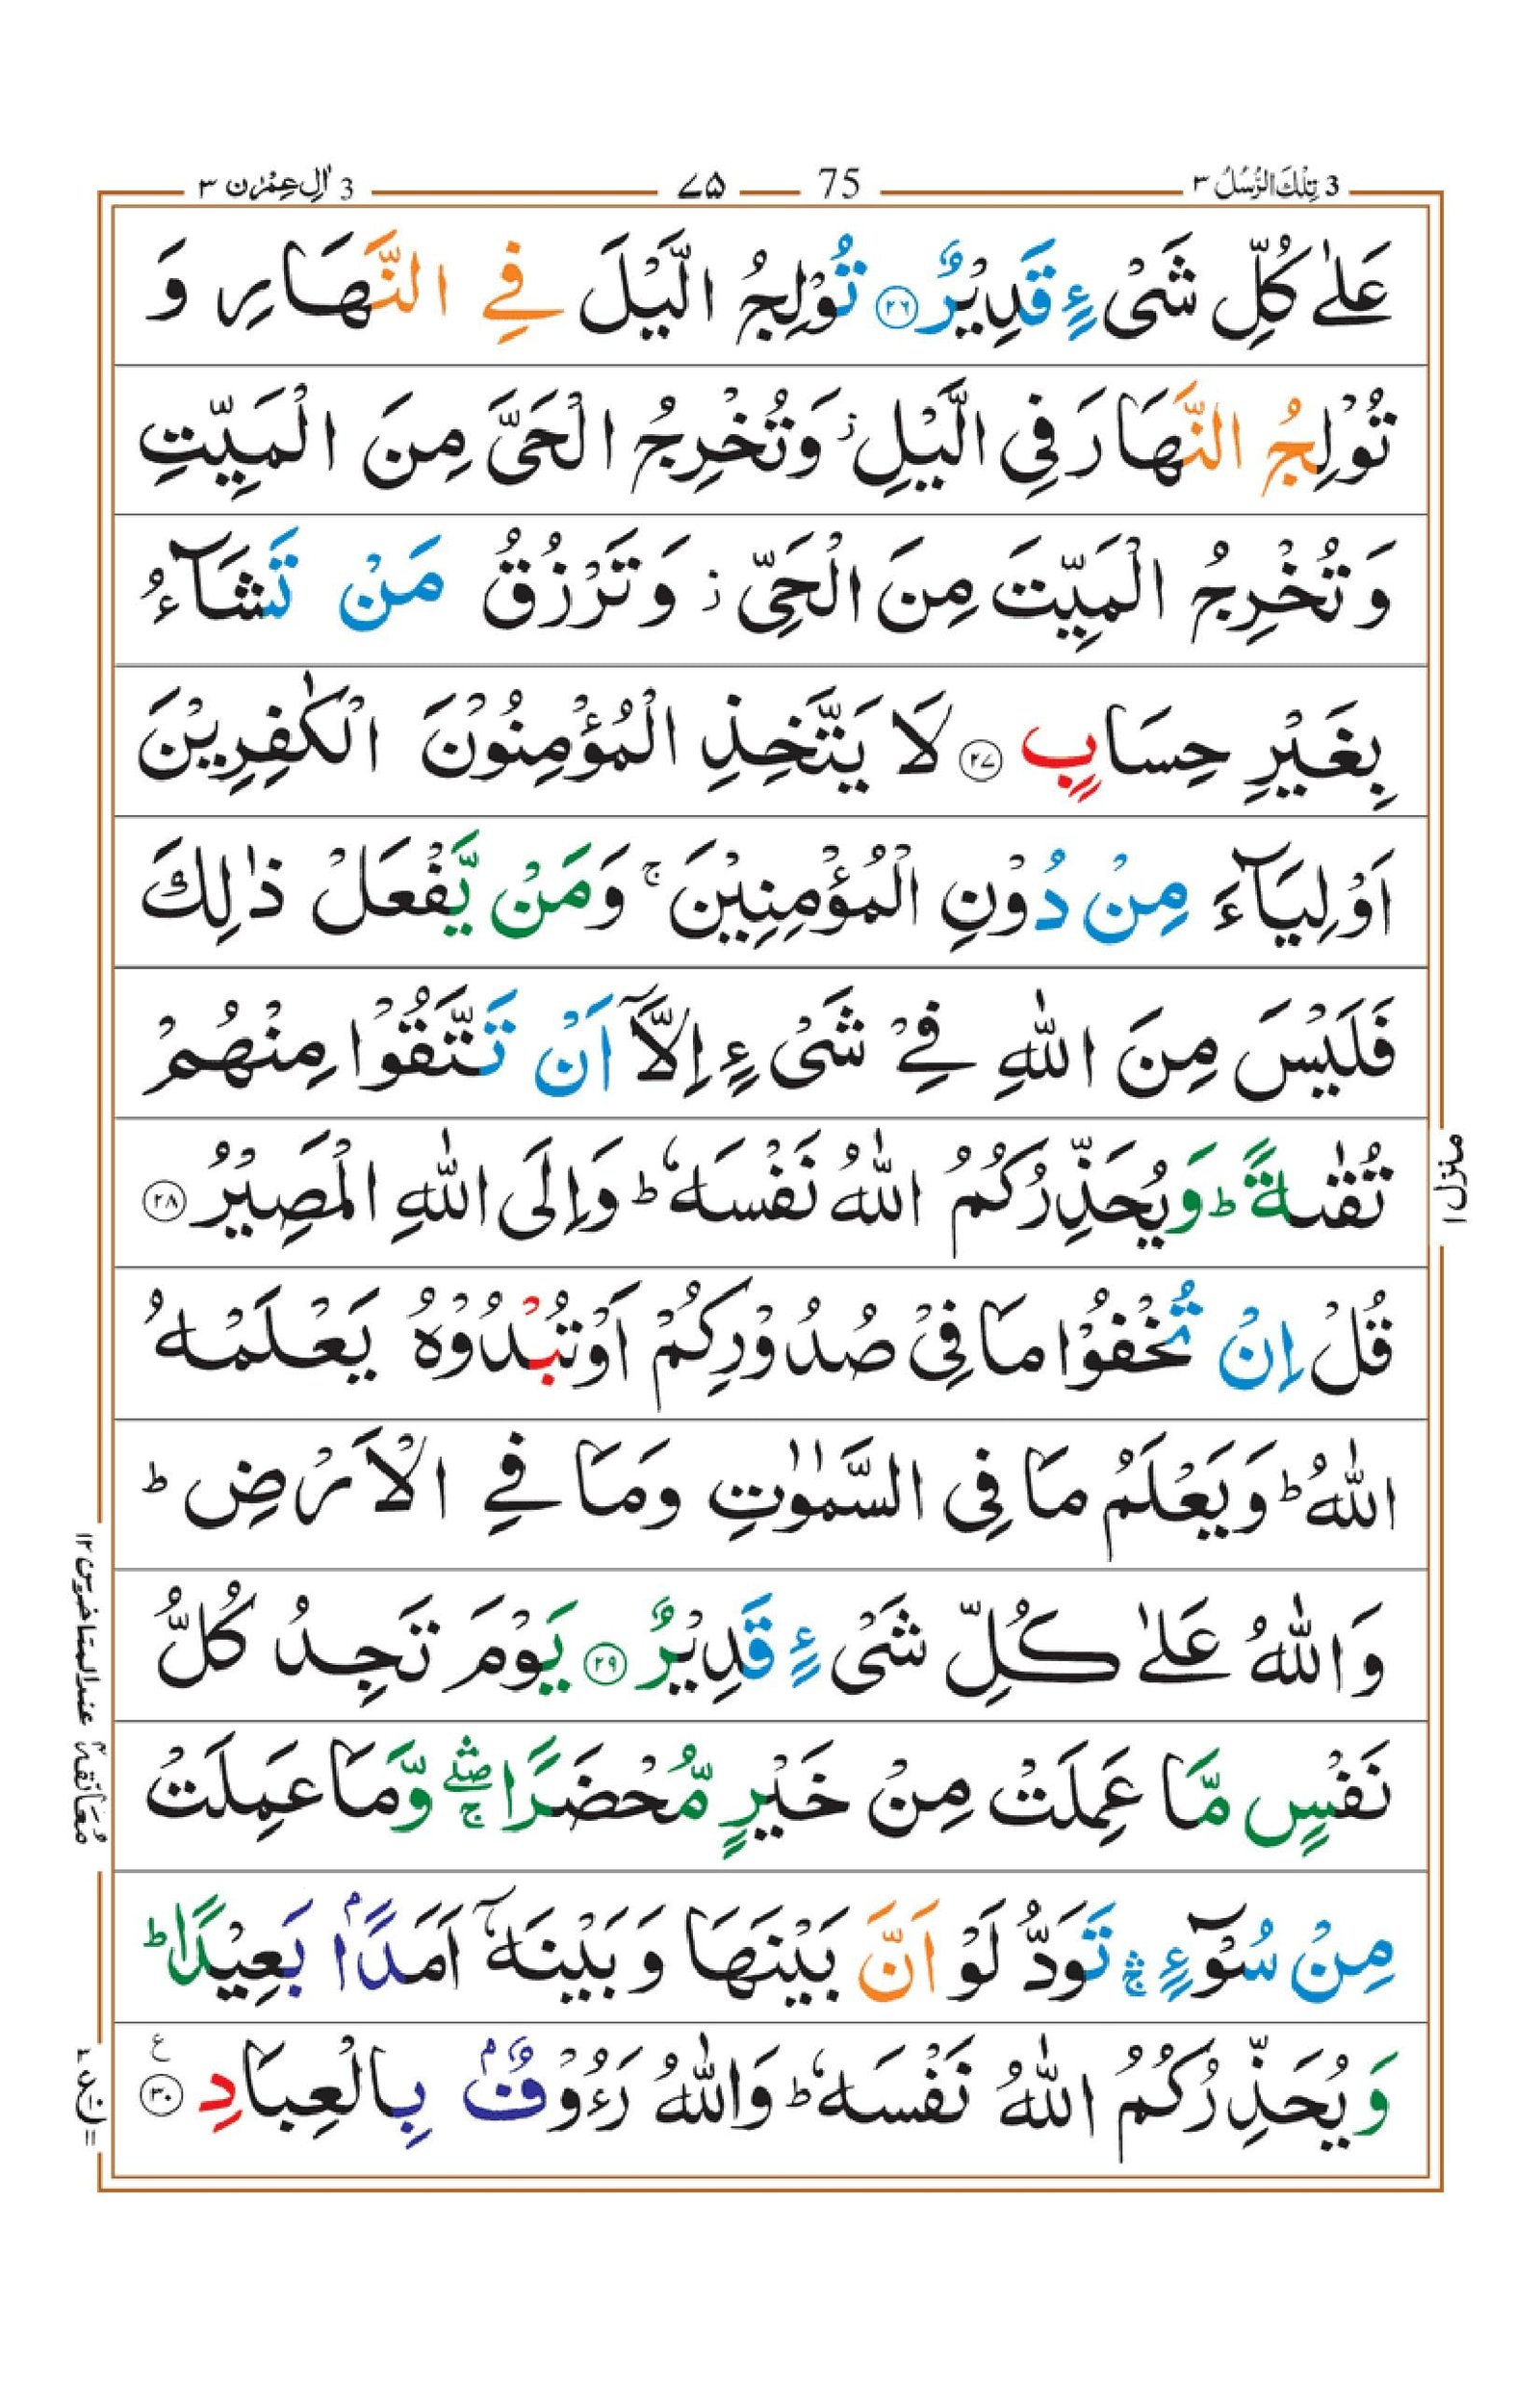 3 تِلْكَ الرُّسُلُ ٣
75 ٧٥
3 اٰلِ عِمْرٰن ٣
عَلٰى كُلِّ شَىْءٍ قَدِيْرٌ ﴿٢٦﴾ تُوْلِجُ الَّيْلَ فِى النَّهَارِ وَ
تُوْلِجُ النَّهَارَ فِى الَّيْلِ ز وَتُخْرِجُ الْحَىَّ مِنَ الْمَيِّتِ
وَتُخْرِجُ الْمَيِّتَ مِنَ الْحَىِّ ز وَتَرْزُقُ مَنْ تَشَآءُ
بِغَيْرِ حِسَابٍ ﴿٢٧﴾ لَا يَتَّخِذِ الْمُؤْمِنُوْنَ الْكٰفِرِيْنَ
اَوْلِيَآءَ مِنْ دُوْنِ الْمُؤْمِنِيْنَ ۚ وَمَنْ يَّفْعَلْ ذٰلِكَ
فَلَيْسَ مِنَ اللّٰهِ فِىْ شَىْءٍ اِلَّآ اَنْ تَتَّقُوْا مِنْهُمْ
تُقٰٮةً ؕ وَيُحَذِّرُكُمُ اللّٰهُ نَفْسَهٗ ؕ وَاِلَى اللّٰهِ الْمَصِيْرُ ﴿٢٨﴾
قُلْ اِنْ تُخْفُوْا مَا فِىْ صُدُوْرِكُمْ اَوْ تُبْدُوْهُ يَعْلَمْهُ
اللّٰهُ ؕ وَيَعْلَمُ مَا فِى السَّمٰوٰتِ وَمَا فِى الْاَرْضِ ؕ
وَاللّٰهُ عَلٰى كُلِّ شَىْءٍ قَدِيْرٌ ﴿٢٩﴾ يَوْمَ تَجِدُ كُلُّ
نَفْسٍ مَّا عَمِلَتْ مِنْ خَيْرٍ مُّحْضَرًا ۖۚ وَّمَا عَمِلَتْ
مِنْ سُوْٓءٍ ۛۚ تَوَدُّ لَوْ اَنَّ بَيْنَهَا وَبَيْنَهٗٓ اَمَدًاۢ بَعِيْدًا ؕ
وَيُحَذِّرُكُمُ اللّٰهُ نَفْسَهٗ ؕ وَاللّٰهُ رَءُوْفٌۢ بِالْعِبَادِ ﴿٣٠﴾ ع
منزل ١
معانقة ٢ عند المتاخرين ١٢